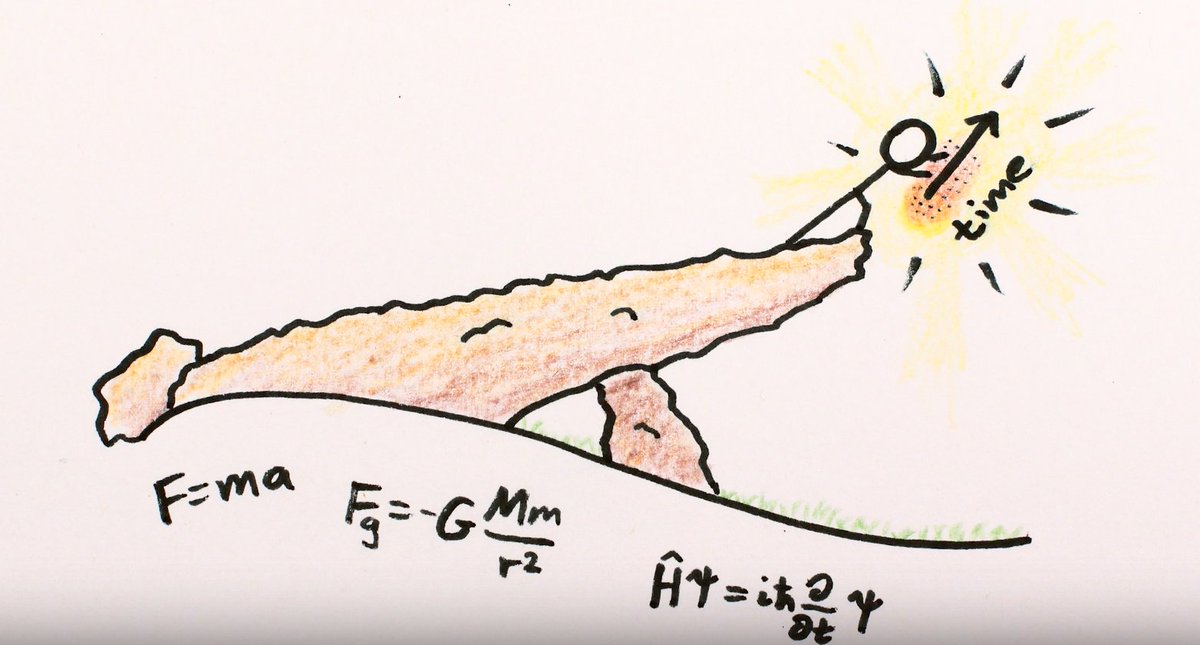 time
F=ma
F_g=-G Mm/r²
Ĥψ=iħ ∂/∂t ψ